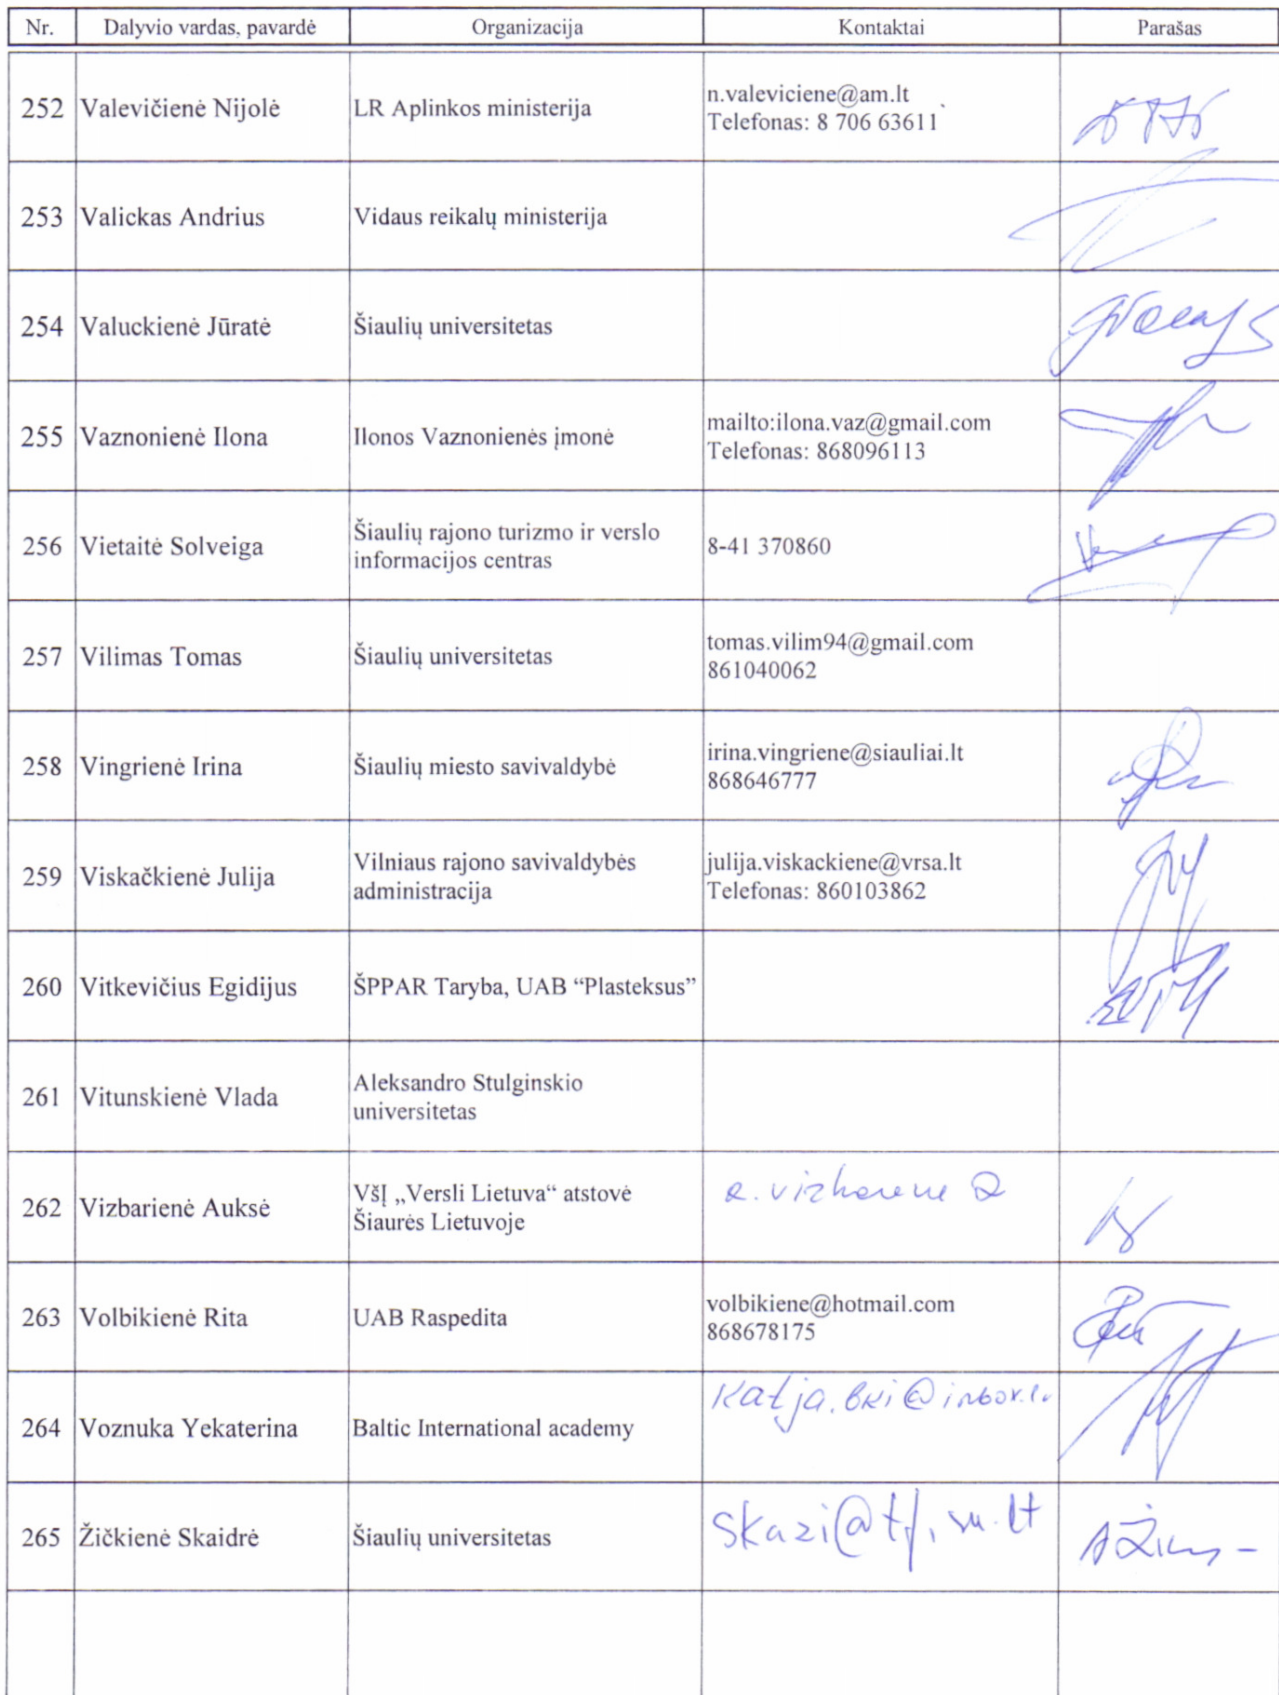 Nr. Dalyvio vardas, pavardė Organizacija Kontaktai Parašas
252 Valevičienė Nijolė LR Aplinkos ministerija n.valeviciene@am.lt
Telefonas: 8 706 63611
253 Valickas Andrius Vidaus reikalų ministerija
254 Valuckienė Jūratė Šiaulių universitetas
255 Vaznonienė Ilona Ilonos Vaznonienės įmonė mailto:ilona.vaz@gmail.com
Telefonas: 868096113
256 Vietaitė Solveiga Šiaulių rajono turizmo ir verslo
informacijos centras 8-41 370860
257 Vilimas Tomas Šiaulių universitetas tomas.vilim94@gmail.com
861040062
258 Vingrienė Irina Šiaulių miesto savivaldybė irina.vingriene@siauliai.lt
868646777
259 Viskačkienė Julija Vilniaus rajono savivaldybės
administracija julija.viskackiene@vrsa.lt
Telefonas: 860103862
260 Vitkevičius Egidijus ŠPPAR Taryba, UAB “Plasteksus”
261 Vitunskienė Vlada Aleksandro Stulginskio
universitetas
262 Vizbarienė Auksė VšĮ „Versli Lietuva“ atstovė
Šiaurės Lietuvoje
263 Volbikienė Rita UAB Raspedita volbikiene@hotmail.com
868678175
264 Voznuka Yekaterina Baltic International academy
265 Žičkienė Skaidrė Šiaulių universitetas